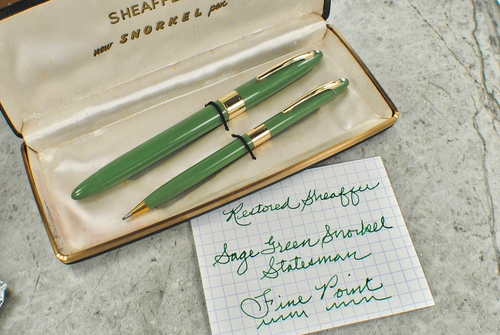 SHEAFFE
new SNORKEL pen
Restored Sheaffer
Sage Green Snorkel
Statesman
Fine Point